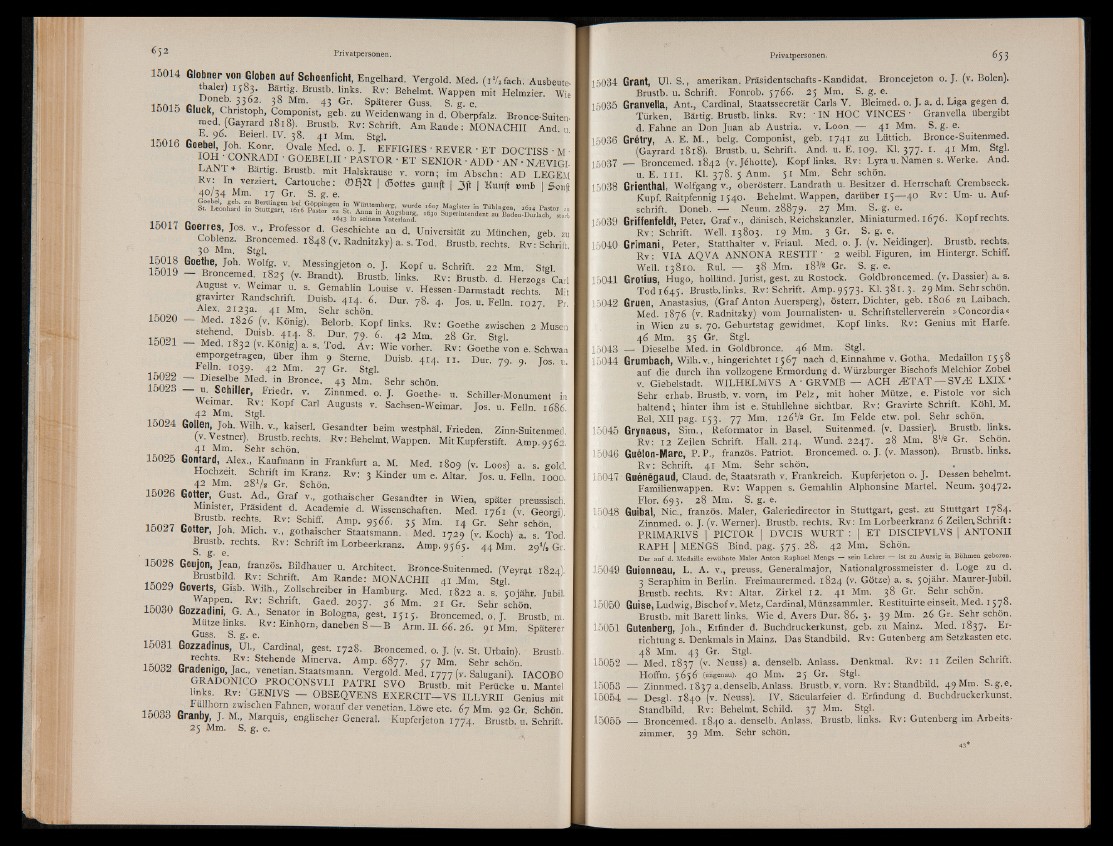 652
Privatpersonen.
15014 Globner von Globen auf Schoenficht, Engelhard. Vergold. Med. (1¹/₄ fach. Ausbeute-
thaler) 1583. Bärtig. Brustb. links. Rv: Behelmt. Wappen mit Helmzier. Wie
Doneb. 3362. 38 Mm. 43 Gr. Späterer Guss. S. g. e.
15015 Gluck, Christoph, Componist, geb. zu Weidenwang in d. Oberpfalz. Bronce-Suiten-
med. (Gayrard 1818). Brustb. Rv: Schrift. Am Rande: MONACHII And. u.
E. 96. Beierl. IV. 38. 41 Mm. Stgl.
15016 Goebel, Joh. Konr. Ovale Med. o. J. EFFIGIES · REVER · ET DOCTISS · M ·
IOH · CONRADI · GOEBELII · PASTOR · ET SENIOR · ADD · AN · NÆVIGI-
LANT + Bärtig. Brustb. mit Halskrause v. vorn; im Abschn: AD LEGEM
Rv: In verziert. Cartouche: | Gottes gunst | Ist | Kunst vmb | Sonst
40/34 Mm. 17 Gr. S. g. e.
15017 Goerres, Jos. v., Professor d. Geschichte an d. Universität zu München, geb. zu
Coblenz. Broncemed. 1848 (v. Radnitzky) a. s. Tod. Brustb. rechts. Rv: Schrift.
30 Mm. Stgl.
15018 Goethe, Joh. Wolfg. v. Messingjeton o. J. Kopf u. Schrift. 22 Mm. Stgl.
15019 — Broncemed. 1825 (v. Brandt). Brustb. links. Rv: Brustb. d. Herzogs Carl
August v. Weimar u. s. Gemahlin Louise v. Hessen-Darmstadt rechts. Mit
gravirter Randschrift. Duisb. 414. 6. Dur. 78. 4. Jos. u. Felln. 1027. Pr.
Alex. 2123a. 41 Mm. Sehr schön.
15020 — Med. 1826 (v. König). Belorb. Kopf links. Rv: Goethe zwischen 2 Musen
stehend. Duisb. 414. 8. Dur. 79. 6. 42 Mm. 28 Gr. Stgl.
15021 — Med. 1832 (v. König) a. s. Tod. Av: Wie vorher. Rv: Goethe von e. Schwan
emporgetragen, über ihm 9 Sterne. Duisb. 414. 11. Dur. 79. 9. Jos. u.
Felln. 1039. 42 Mm. 27 Gr. Stgl.
15022 — Dieselbe Med. in Bronce. 43 Mm. Sehr schön.
15023 — u. Schiller, Friedr. v. Zinnmed. o. J. Goethe- u. Schiller-Monument in
Weimar. Rv: Kopf Carl Augusts v. Sachsen-Weimar. Jos. u. Felln. 1686.
42 Mm. Stgl.
15024 Gollen, Joh. Wilh. v., kaiserl. Gesandter beim westphäl. Frieden. Zinn-Suitenmed.
(v. Vestner). Brustb. rechts. Rv: Behelmt. Wappen. Mit Kupferstift. Amp. 9562.
41 Mm. Sehr schön.
15025 Gontard, Alex., Kaufmann in Frankfurt a. M. Med. 1809 (v. Loos) a. s. gold.
Hochzeit. Schrift im Kranz. Rv: 3 Kinder um e. Altar. Jos. u. Felln. 1000.
42 Mm. 28¹/₂ Gr. Schön.
15026 Gotter, Gust. Ad., Graf v., gothaischer Gesandter in Wien, später preussisch.
Minister, Präsident d. Academie d. Wissenschaften. Med. 1761 (v. Georgi).
Brustb. rechts. Rv: Schiff. Amp. 9566. 35 Mm. 14 Gr. Sehr schön.
15027 Gotter, Joh. Mich. v., gothaischer Staatsmann. Med. 1729 (v. Koch) a. s. Tod.
Brustb. rechts. Rv: Schrift im Lorbeerkranz. Amp. 9565. 44 Mm. 29¹/₂ Gr.
S. g. e.
15028 Goujon, Jean, französ. Bildhauer u. Architect. Bronce-Suitenmed. (Veyrat 1824).
Brustbild. Rv: Schrift. Am Rande: MONACHII 41 Mm. Stgl.
15029 Goverts, Gisb. Wilh., Zollschreiber in Hamburg. Med. 1822 a. s. 50jähr. Jubil.
Wappen. Rv: Schrift. Gaed. 2037. 36 Mm. 21 Gr. Sehr schön.
15030 Gozzadini, G. A., Senator in Bologna, gest. 1515. Broncemed. o. J. Brustb. m.
Mütze links. Rv: Einhorn, daneben S — B Arm. II. 66. 26. 91 Mm. Späterer
Guss. S. g. e.
15031 Gozzadinus, Ul., Cardinal, gest. 1728. Broncemed. o. J. (v. St. Urbain). Brustb.
rechts. Rv: Stehende Minerva. Amp. 6877. 57 Mm. Sehr schön.
15032 Gradenigo, Jac., venetian. Staatsmann. Vergold. Med. 1777 (v. Salugani). IACOBO
GRADONICO PROCONSVLI PATRI SVO Brustb. mit Perücke u. Mantel
links. Rv: GENIVS — OBSEQVENS EXERCIT—VS ILLYRII Genius mit
Füllhorn zwischen Fahnen, worauf der venetian. Löwe etc. 67 Mm. 92 Gr. Schön.
15033 Granby, J. M., Marquis, englischer General. Kupferjeton 1774. Brustb. u. Schrift.
25 Mm. S. g. e.
Privatpersonen.
653
15034 Grant, Ul. S., amerikan. Präsidentschafts-Kandidat. Broncejeton o. J. (v. Bolen).
Brustb. u. Schrift. Fonrob. 5766. 25 Mm. S. g. e.
15035 Granvella, Ant., Cardinal, Staatssecretär Carls V. Bleimed. o. J. a. d. Liga gegen d.
Türken. Bärtig. Brustb. links. Rv: · IN HOC VINCES · Granvella übergibt
d. Fahne an Don Juan ab Austria. v. Loon — 41 Mm. S. g. e.
15036 Grétry, A. E. M., belg. Componist, geb. 1741 zu Lüttich. Bronce-Suitenmed.
(Gayrard 1818). Brustb. u. Schrift. And. u. E. 109. Kl. 377. 1. 41 Mm. Stgl.
15037 — Broncemed. 1842 (v. Jéhotte). Kopf links. Rv: Lyra u. Namen s. Werke. And.
u. E. 111. Kl. 378. 5 Anm. 51 Mm. Sehr schön.
15038 Grienthal, Wolfgang v., oberösterr. Landrath u. Besitzer d. Herrschaft Crembseck.
Kupf. Raitpfennig 1540. Behelmt. Wappen, darüber 15—40 Rv: Um- u. Auf-
schrift. Doneb. — Neum. 28879. 27 Mm. S. g. e.
15039 Griffenfeldt, Peter, Graf v., dänisch. Reichskanzler. Miniaturmed. 1676. Kopf rechts.
Rv: Schrift. Well. 13803. 19 Mm. 3 Gr. S. g. e.
15040 Grimani, Peter, Statthalter v. Friaul. Med. o. J. (v. Neidinger). Brustb. rechts.
Rv: VIA AQVA ANNONA RESTIT · 2 weibl. Figuren, im Hintergr. Schiff.
Well. 13810. Rul. — 38 Mm. 18³/₄ Gr. S. g. e.
15041 Grotius, Hugo, holländ. Jurist, gest. zu Rostock. Goldbroncemed. (v. Dassier) a. s.
Tod 1645. Brustb. links. Rv: Schrift. Amp. 9573. Kl. 381. 3. 29 Mm. Sehr schön.
15042 Gruen, Anastasius, (Graf Anton Auersperg), österr. Dichter, geb. 1806 zu Laibach.
Med. 1876 (v. Radnitzky) vom Journalisten- u. Schriftstellerverein »Concordia«
in Wien zu s. 70. Geburtstag gewidmet. Kopf links. Rv: Genius mit Harfe.
46 Mm. 35 Gr. Stgl.
15043 — Dieselbe Med. in Goldbronce. 46 Mm. Stgl.
15044 Grumbach, Wilh. v., hingerichtet 1567 nach d. Einnahme v. Gotha. Medaillon 1558
auf die durch ihn vollzogene Ermordung d. Würzburger Bischofs Melchior Zobel
v. Giebelstadt. WILHELMVS A · GRVMB — ACH ÆTAT — SVÆ LXIX ·
Sehr erhab. Brustb. v. vorn, im Pelz, mit hoher Mütze, e. Pistole vor sich
haltend; hinter ihm ist e. Stuhllehne sichtbar. Rv: Gravirte Schrift. Köhl. M.
Bel. XII pag. 153. 77 Mm. 126¹/₂ Gr. Im Felde etw. pol. Sehr schön.
15045 Grynaeus, Sim., Reformator in Basel. Suitenmed. (v. Dassier). Brustb. links.
Rv: 12 Zeilen Schrift. Hall. 214. Wund. 2247. 28 Mm. 8¹/₂ Gr. Schön.
15046 Guélon-Marc, P. P., französ. Patriot. Broncemed. o. J. (v. Masson). Brustb. links.
Rv: Schrift. 41 Mm. Sehr schön.
15047 Guénégaud, Claud. de, Staatsrath v. Frankreich. Kupferjeton o. J. Dessen behelmt.
Familienwappen. Rv: Wappen s. Gemahlin Alphonsine Martel. Neum. 30472.
Flor. 693. 28 Mm. S. g. e.
15048 Guibal, Nic., französ. Maler, Galeriedirector in Stuttgart, gest. zu Stuttgart 1784.
Zinnmed. o. J. (v. Werner). Brustb. rechts. Rv: Im Lorbeerkranz 6 Zeilen, Schrift:
PRIMARIVS | PICTOR | DVCIS WURT : | ET DISCIPVLVS | ANTONII
RAPH | MENGS Bind. pag. 575. 28. 42 Mm. Schön.
Der auf d. Medaille erwähnte Maler Anton Raphael Mengs — sein Lehrer — ist zu Aussig in Böhmen geboren.
15049 Guionneau, L. A. v., preuss. Generalmajor, Nationalgrossmeister d. Loge zu d.
3 Seraphim in Berlin. Freimaurermed. 1824 (v. Götze) a. s. 50jähr. Maurer-Jubil.
Brustb. rechts. Rv: Altar. Zirkel 12. 41 Mm. 38 Gr. Sehr schön.
15050 Guise, Ludwig, Bischof v. Metz, Cardinal, Münzsammler. Restituirte einseit. Med. 1578.
Brustb. mit Barett links. Wie d. Avers Dur. 86. 3. 39 Mm. 26 Gr. Sehr schön.
15051 Gutenberg, Joh., Erfinder d. Buchdruckerkunst, geb. zu Mainz. Med. 1837. Er-
richtung s. Denkmals in Mainz. Das Standbild. Rv: Gutenberg am Setzkasten etc.
48 Mm. 43 Gr. Stgl.
15052 — Med. 1837 (v. Neuss) a. denselb. Anlass. Denkmal. Rv: 11 Zeilen Schrift.
Hoffm. 5656 (ungenau). 40 Mm. 25 Gr. Stgl.
15053 — Zinnmed. 1837 a. denselb. Anlass. Brustb. v. vorn. Rv: Standbild. 49 Mm. S. g. e.
15054 — Desgl. 1840 (v. Neuss). IV. Säcularfeier d. Erfindung d. Buchdruckerkunst.
Standbild. Rv: Behelmt. Schild. 37 Mm. Stgl.
15055 — Broncemed. 1840 a. denselb. Anlass. Brustb. links. Rv: Gutenberg im Arbeits-
zimmer. 39 Mm. Sehr schön.
43*